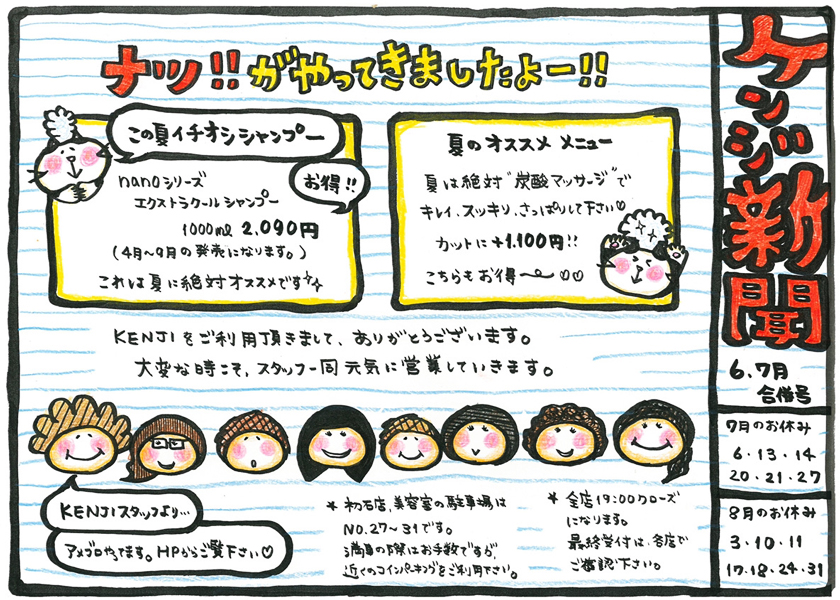 ケンジ新聞
6.7月
合併号
7月のお休み
6・13・14
20・21・27
8月のお休み
3・10・11
17・18・24・31
ナツ!!がやってきましたよー!!
この夏イチオシシャンプー
お得!!
nanoシリーズ
エクストラクールシャンプー
1000ml 2,090円
(4月~9月の発売になります。)
これは夏に絶対オススメです
夏のオススメ メニュー
夏は絶対"炭酸マッサージ"で
キレイ、スッキリ、さっぱりして下さい♡
カットに+1,100円!!
こちらもお得〜♡♡
KENJIをご利用頂きまして、ありがとうございます。
大変な時こそ、スタッフ一同元気に営業していきます。
KENJIスタッフより…
アメブロやってます。HPからご覧下さい♡
*初石店、美容室の駐車場は
NO.27~31です。
満車の際はお手数ですが、
近くのコインパーキングをご利用下さい。
*全店19:00クローズ
になります。
最終受付は、各店で
ご確認下さい。